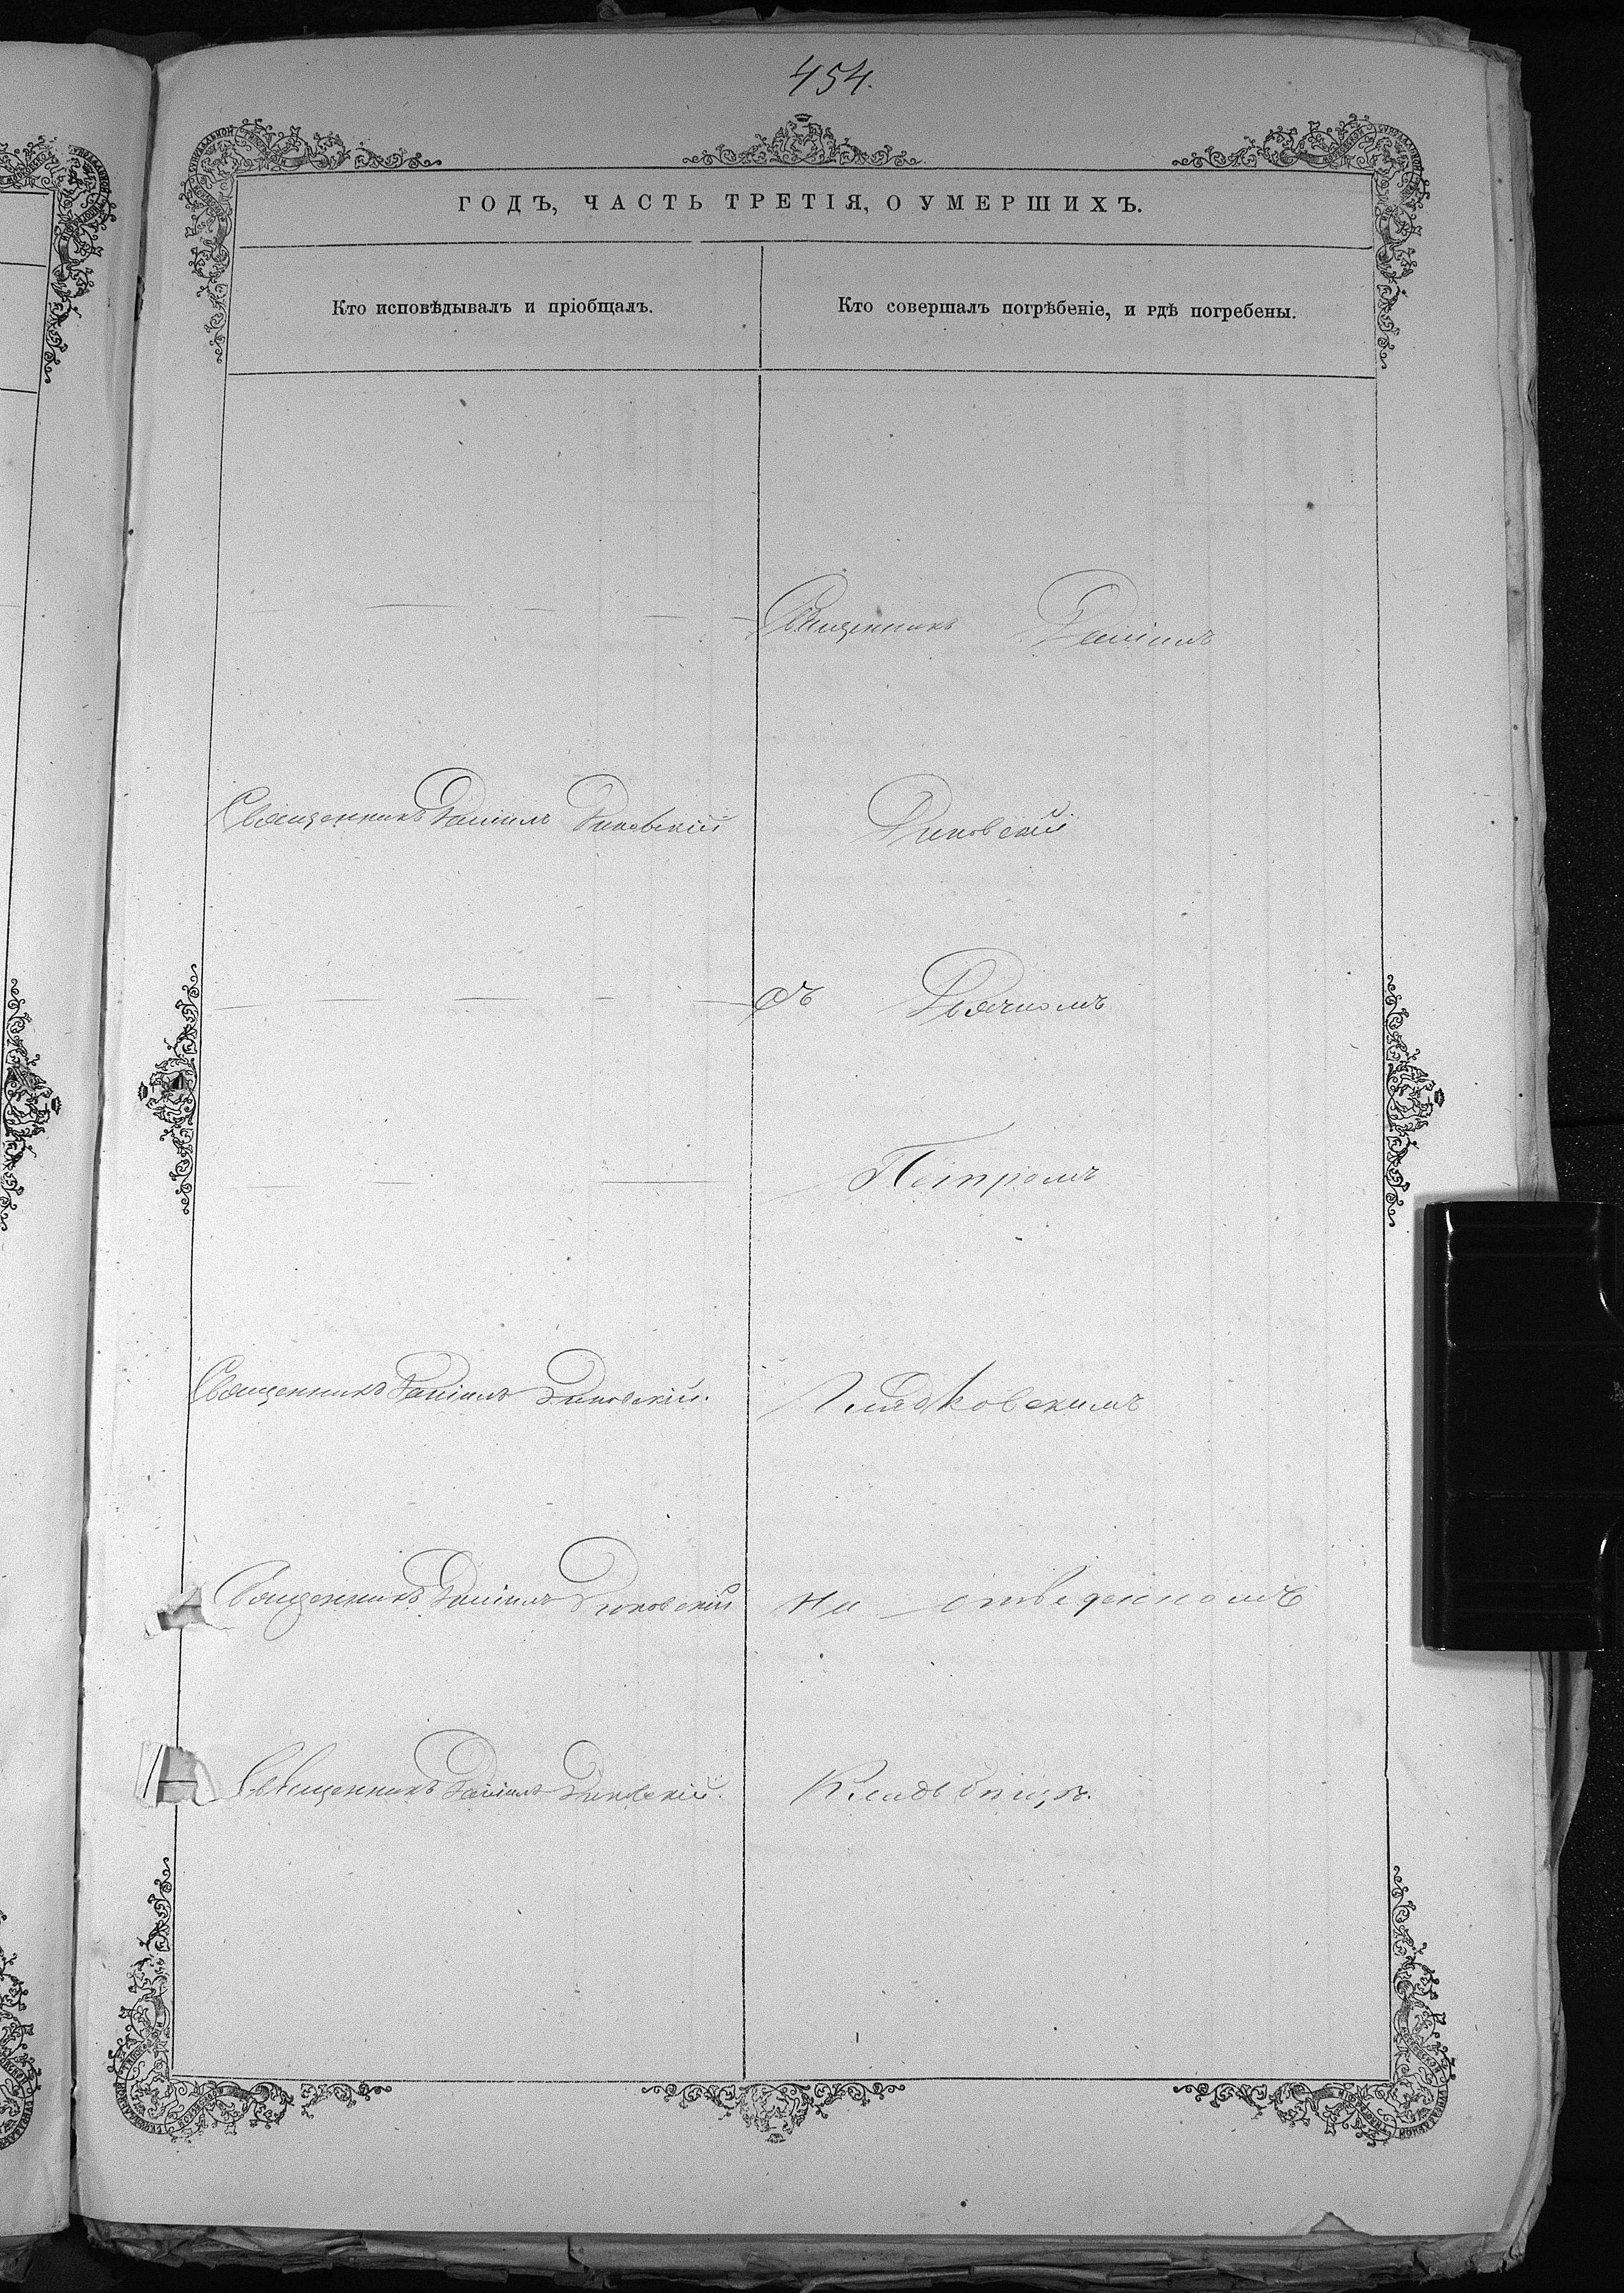 454.
ГОДЪ, ЧАСТЬ ТРЕТІЯ, О УМЕРШИХЪ.
Кто исповѣдывалъ и пріобщалъ.
Кто совершалъ погрѣбеніе, и гдѣ погребены.
Священникъ Даніилъ
Священникъ Даніилъ Диковскій
Диковскій
съ Дьячкомъ
Петромъ
Священникъ Даніилъ Диковскій.
Гладковскимъ
Священникъ Даніилъ Диковскій
на отведенномъ
Священникъ Даніилъ Диковскій.
Кладбищѣ.